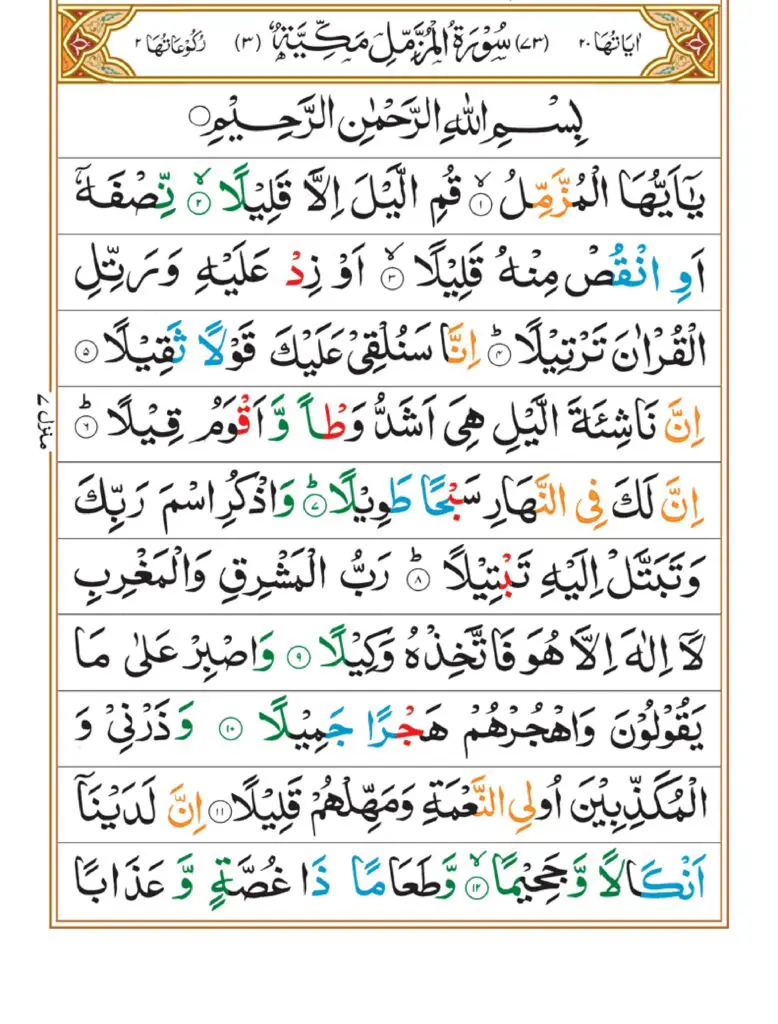 اٰیَاتُهَا ٢٠ (٧٣) سُوْرَةُ الْمُزَّمِّلِ مَكِّیَّةٌ (٣) رُكُوْعَاتُهَا ٢
بِسْمِ اللّٰهِ الرَّحْمٰنِ الرَّحِیْمِ
یٰۤاَیُّهَا الْمُزَّمِّلُ ۙ ١ قُمِ الَّیْلَ اِلَّا قَلِیْلًا ۙ ٢ نِّصْفَهٗۤ
اَوِ انْقُصْ مِنْهُ قَلِیْلًا ۙ ٣ اَوْ زِدْ عَلَیْهِ وَرَتِّلِ
الْقُرْاٰنَ تَرْتِیْلًا ؕ ٤ اِنَّا سَنُلْقِیْ عَلَیْكَ قَوْلًا ثَقِیْلًا ٥
اِنَّ نَاشِئَةَ الَّیْلِ هِیَ اَشَدُّ وَطْاً وَّ اَقْوَمُ قِیْلًا ؕ ٦
منزل ٧
اِنَّ لَكَ فِی النَّهَارِ سَبْحًا طَوِیْلًا ؕ ٧ وَاذْكُرِ اسْمَ رَبِّكَ
وَتَبَتَّلْ اِلَیْهِ تَبْتِیْلًا ؕ ٨ رَبُّ الْمَشْرِقِ وَالْمَغْرِبِ
لَاۤ اِلٰهَ اِلَّا هُوَ فَاتَّخِذْهُ وَكِیْلًا ٩ وَاصْبِرْ عَلٰی مَا
یَقُوْلُوْنَ وَاهْجُرْهُمْ هَجْرًا جَمِیْلًا ١٠ وَذَرْنِیْ وَ
الْمُكَذِّبِیْنَ اُولِی النَّعْمَةِ وَمَهِّلْهُمْ قَلِیْلًا ١١ اِنَّ لَدَیْنَاۤ
اَنْكَالًا وَّجَحِیْمًا ۙ ١٢ وَّطَعَامًا ذَا غُصَّةٍ وَّ عَذَابًا